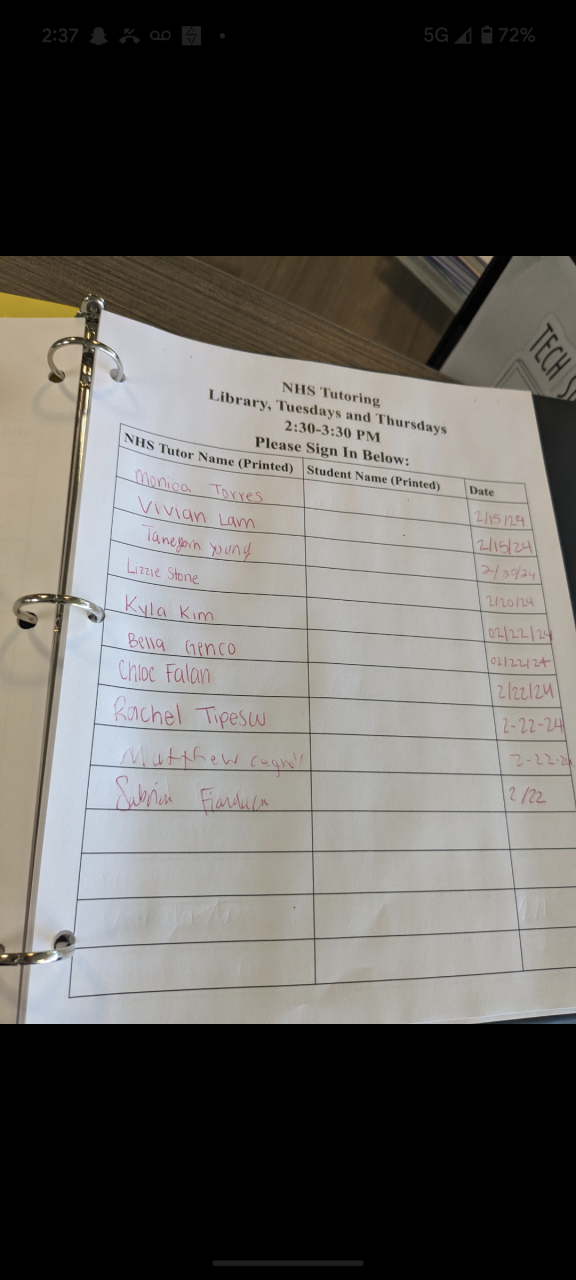 2:37
5G 72%
TECH
NHS Tutoring
Library, Tuesdays and Thursdays
2:30-3:30 PM
Please Sign In Below:
NHS Tutor Name (Printed) Student Name (Printed) Date
Monica Torres 2/15/24
Vivian Lam 2/15/24
Young
Lizzie Stone 2/20/24
Kyla Kim 02/22/24
Bella Genco 02/22/24
Chloe Falan 2/22/24
Rachel 2-22-24
Matthew 2-22-24
Sabrina 2/22